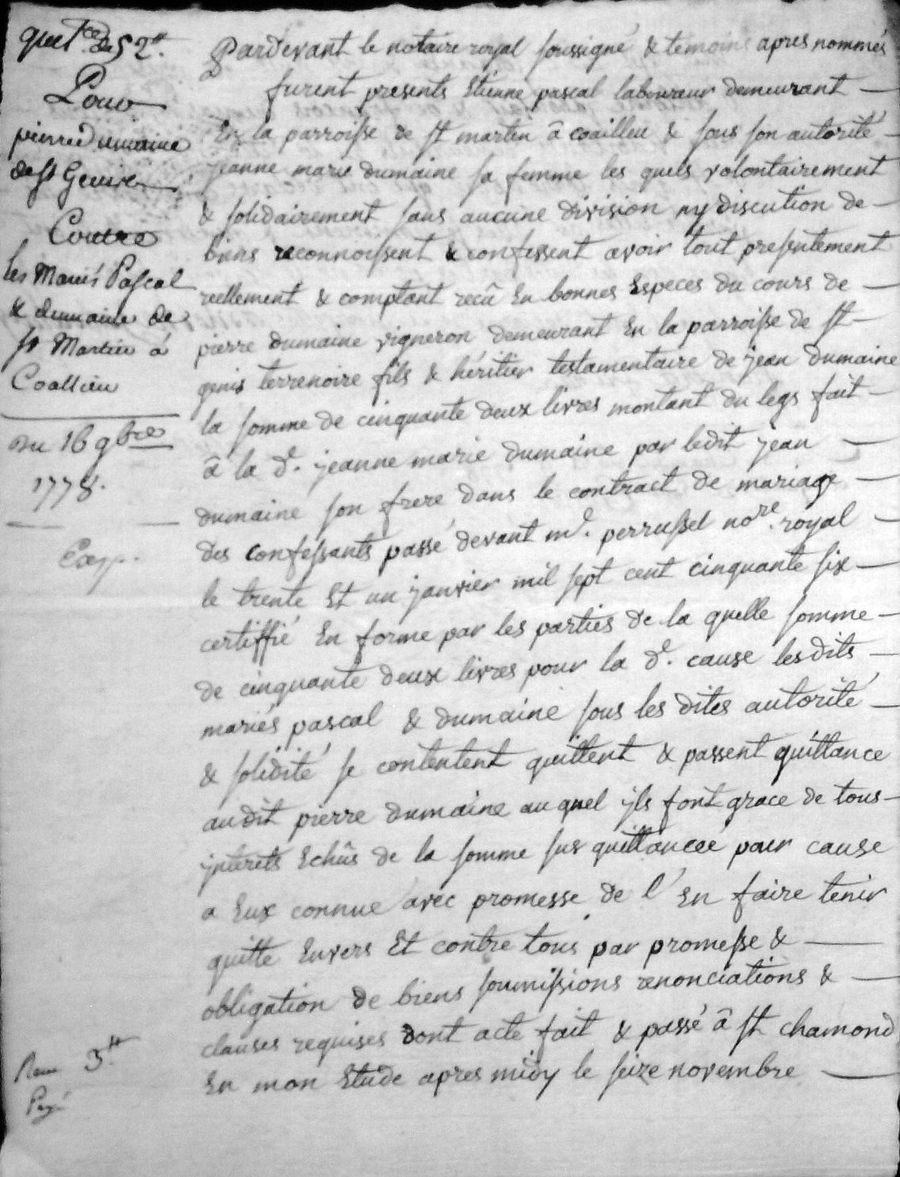 quit.ce de 52 tt.
Pour
pierre dumaine
de st Genis
Contre
les Mariés Pascal
& dumaine de
st Martin à
Coallieu
Du 16 gbre
1778.
Exp.
Pardevant le notaire royal soussigné & temoins apres nommés
furent presents Etienne pascal laboureur demeurant —
En la parroisse de st martin â coailleu & sous son autorité —
jeanne marie dumaine sa femme les quels volontairement
& solidairement sans aucune division ny discution de —
biens reconnoissent & confessent avoir tout presentement
reellement & comptant recû En bonnes Especes du cours de —
pierre dumaine vigneron demeurant En la parroisse de st —
genis terrenoire fils & héritier testamentaire de jean dumaine
la somme de cinquante deux livres montant du legs fait —
â la d.e jeanne marie dumaine par ledit jean —
dumaine son frere dans le contract de mariage —
des confessants passé devant m.e perrussel no.re royal —
le trente Et un janvier mil sept cent cinquante six —
certiffié En forme par les parties de la quelle somme —
de cinquante deux livres pour la d.e cause lesdits —
mariés pascal & dumaine sous les dites autorité —
& solidité se contentent quittent & passent quittance
audit pierre dumaine au quel ils font grace de tous —
interets Echûs de la somme sus quittancée pour cause
a Eux connue avec promesse de l'En faire tenir
quitte Envers Et contre tous par promesse & —
obligation de biens soumissions renonciations & —
clauses requises dont acte fait & passé â st chamond
En mon Etude apres midy le seize novembre —
3 tt
Payé